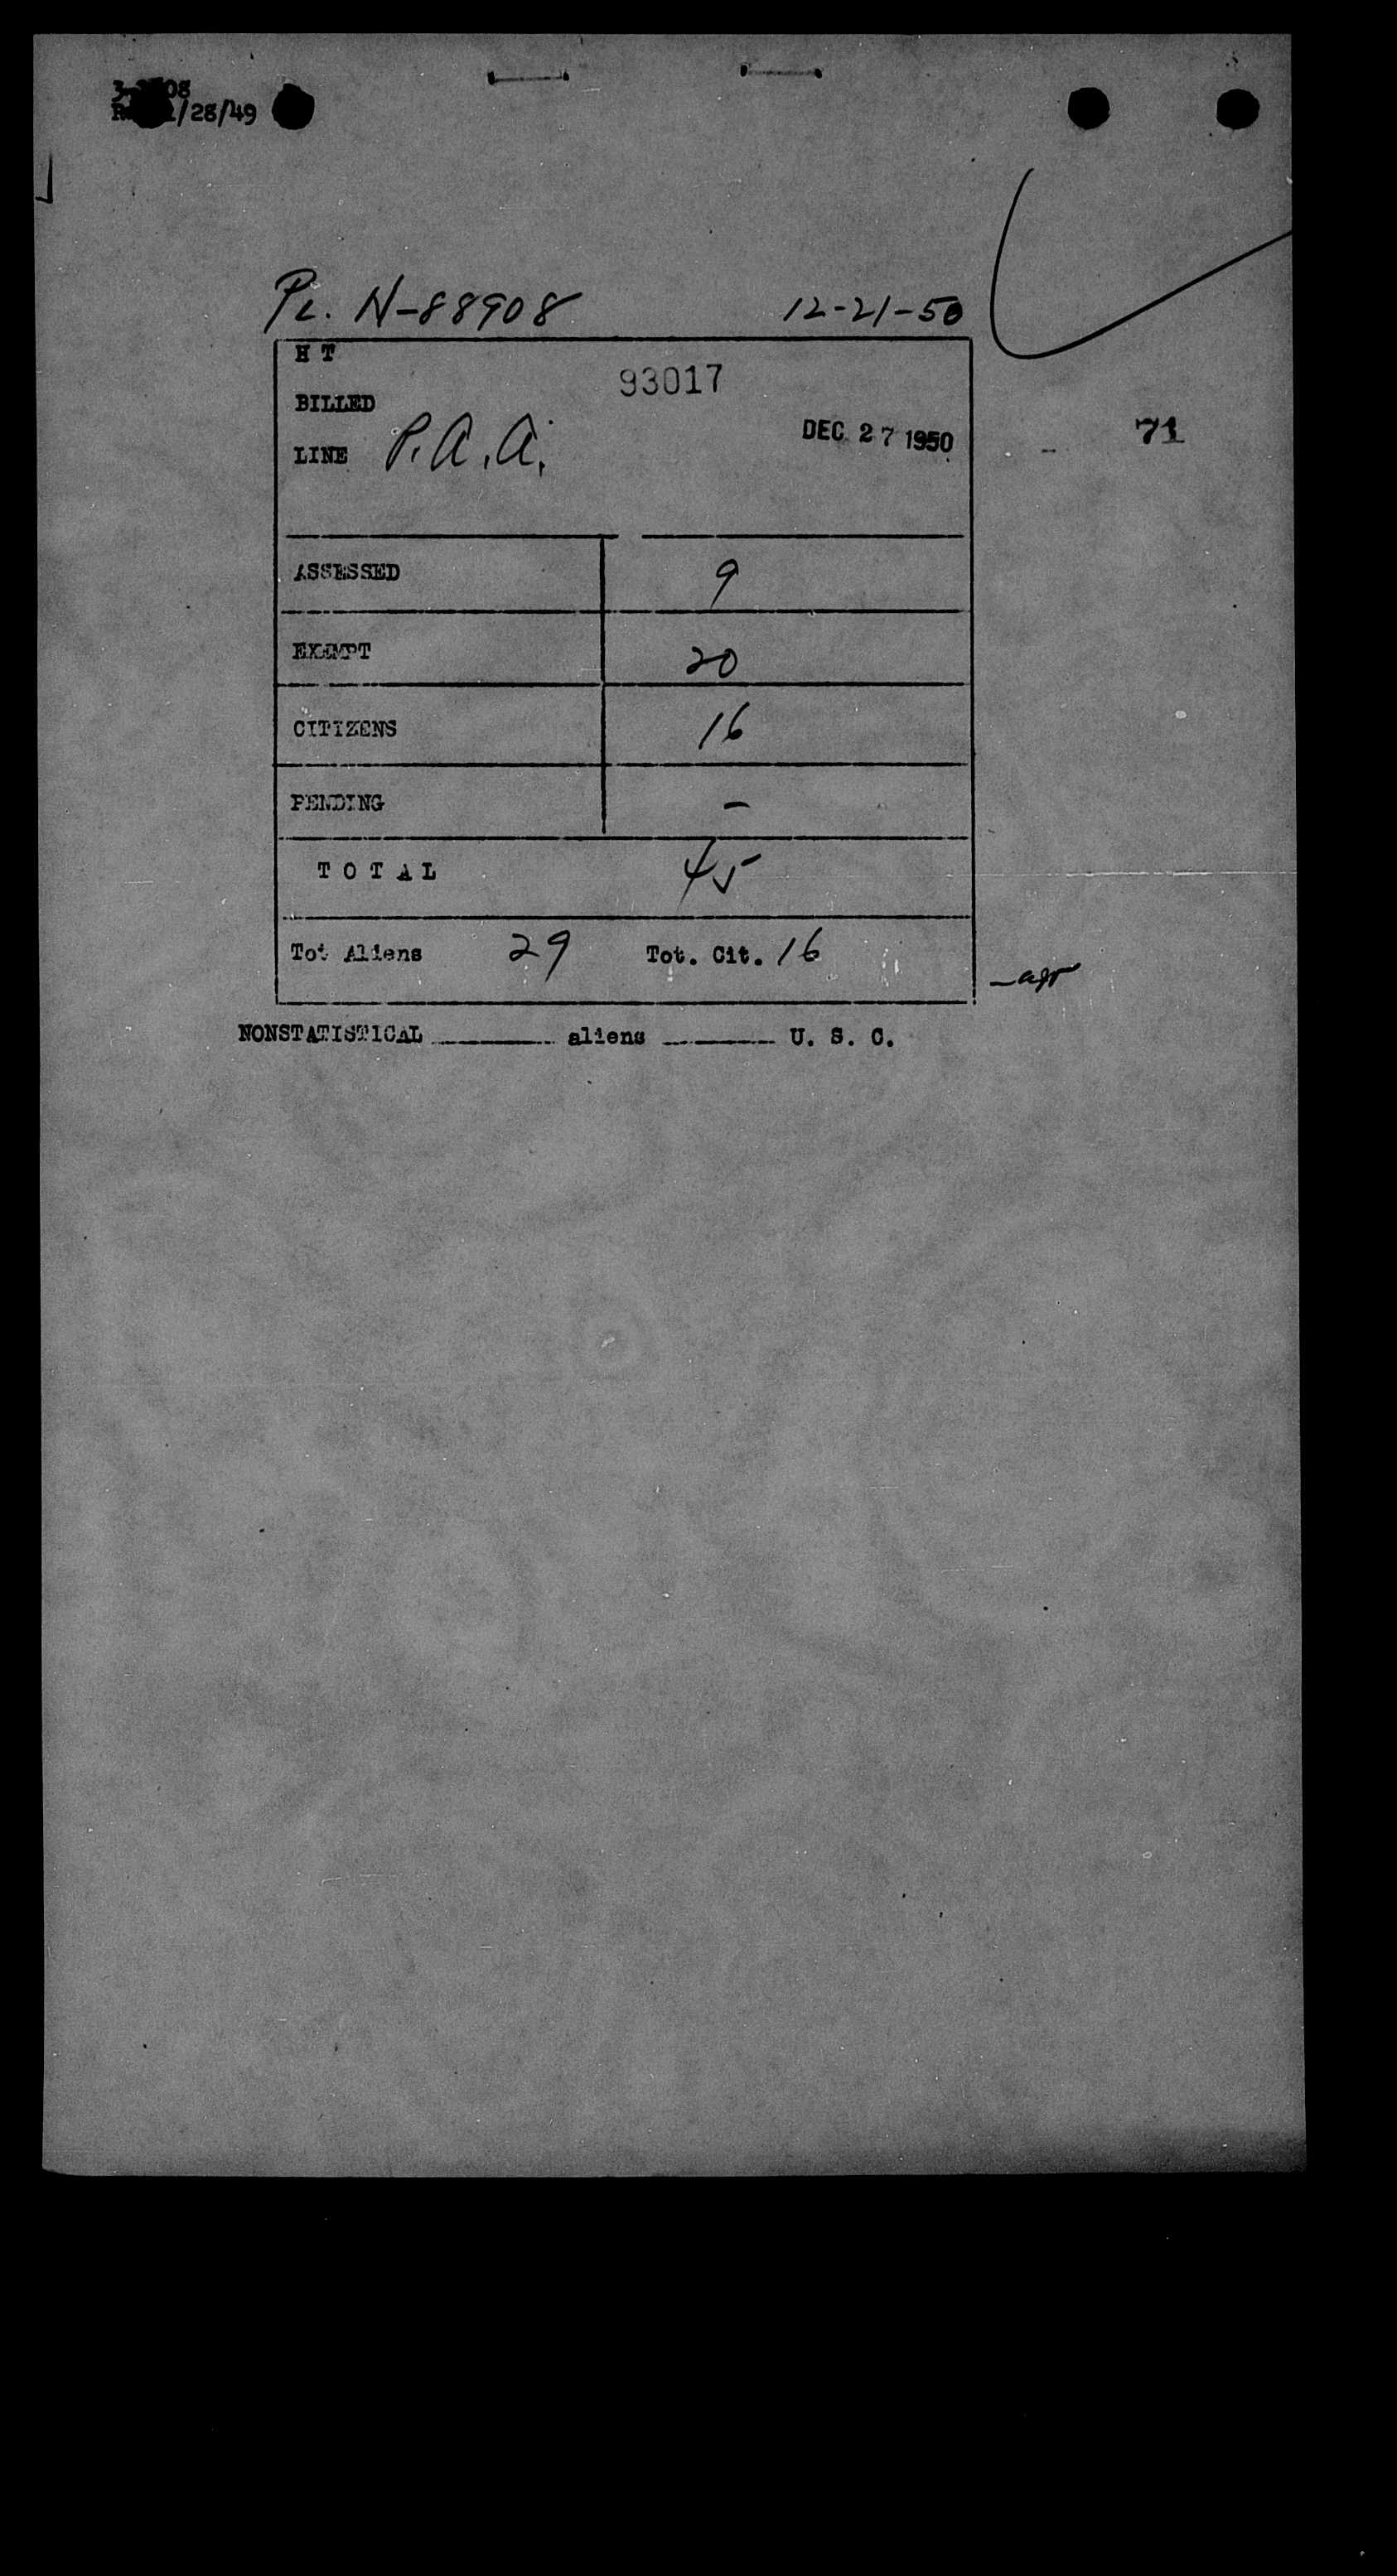 Pl. N-88908 12-21-50
H T
93017
BILLED
LINE P.A.A.
DEC 27 1950
71
ASSESSED 9
EXEMPT 20
CITIZENS 16
PENDING -
TOTAL 45
Tot Aliens 29 Tot. Cit. 16
NONSTATISTICAL ______ aliens ______ U. S. C.